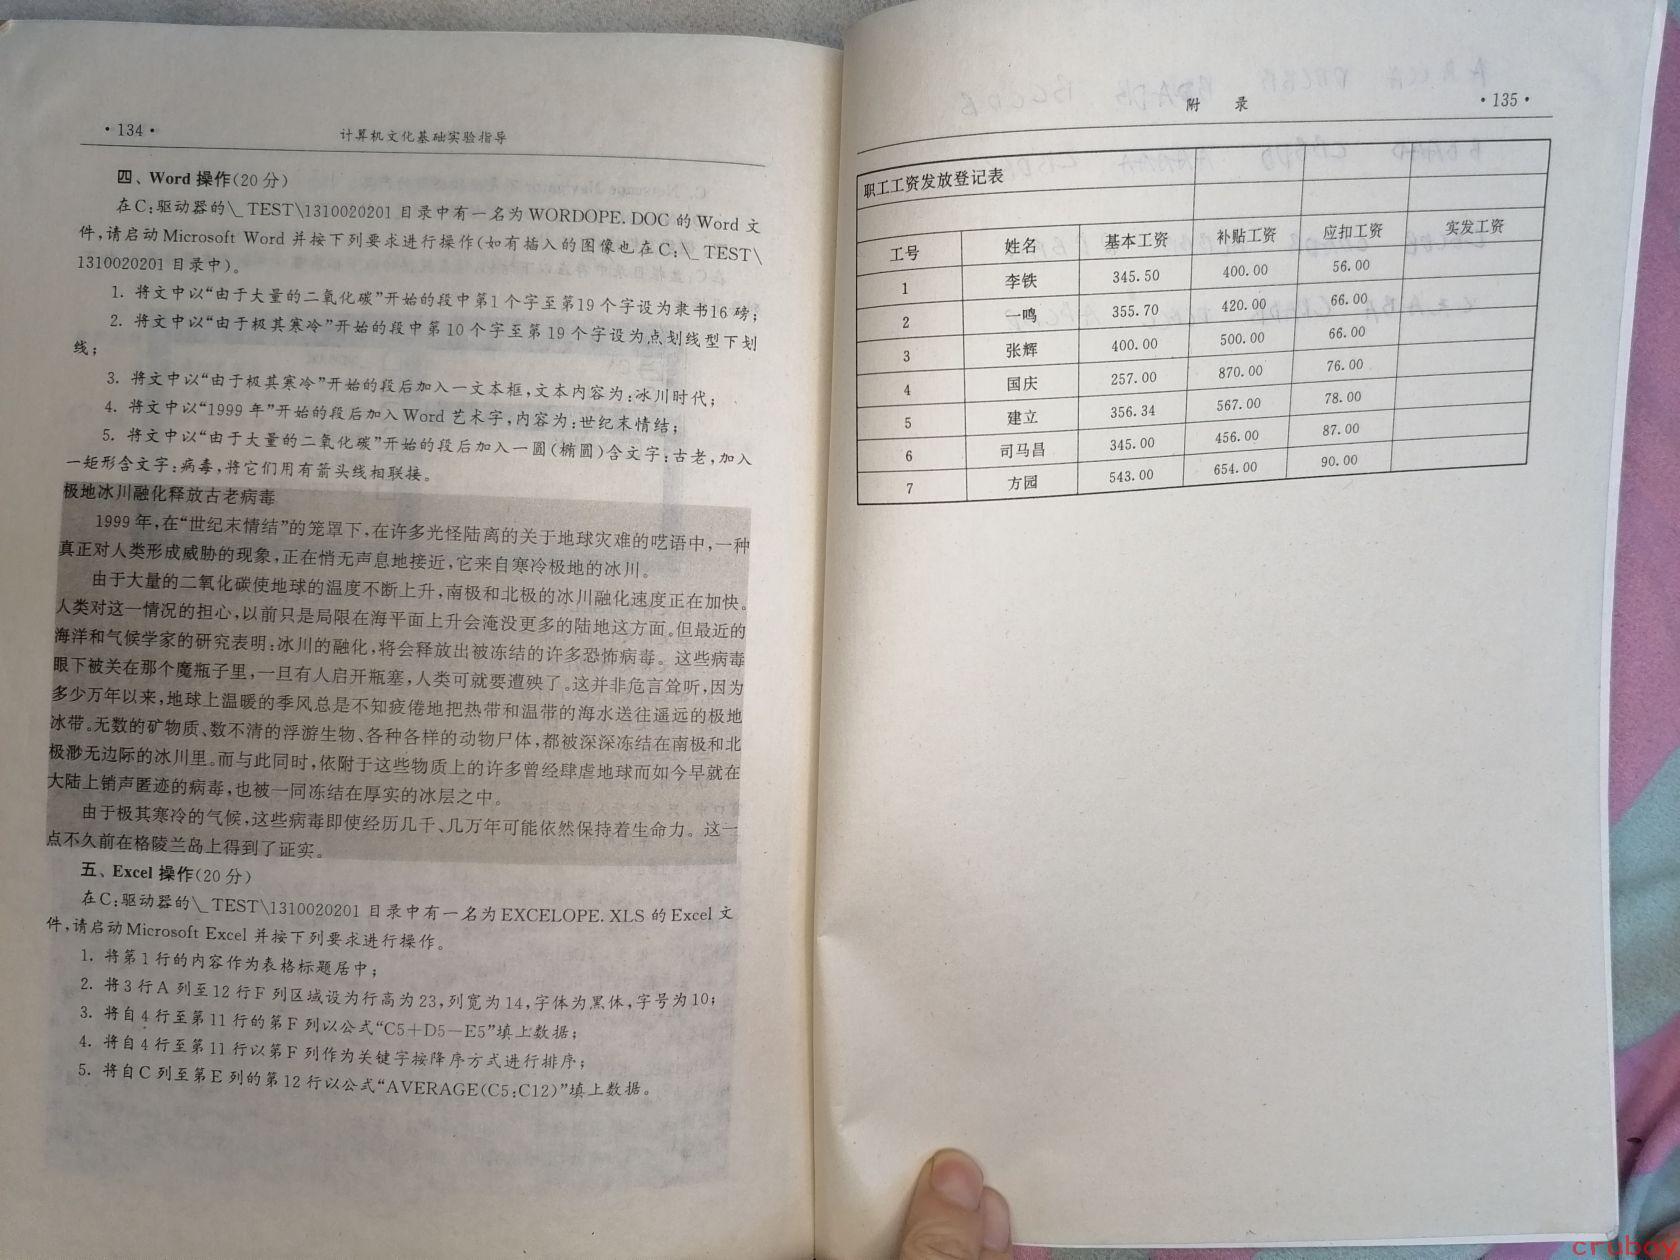 ·134·
计算机文化基础实验指导
四、Word 操作(20 分)
在C:驱动器的\_TEST\1310020201 目录中有一名为 WORDOPE.DOC 的 Word 文
件,请启动 Microsoft Word 并按下列要求进行操作(如有插入的图像也在 C:\_TEST\
1310020201 目录中)。
1. 将文中以“由于大量的二氧化碳”开始的段中第1个字至第19个字设为隶书16磅;
2. 将文中以“由于极其寒冷”开始的段中第10个字至第19个字设为点划线型下划
线;
3. 将文中以“由于极其寒冷”开始的段后加入一文本框,文本内容为:冰川时代;
4. 将文中以“1999年”开始的段后加入 Word 艺术字,内容为:世纪末情结;
5. 将文中以“由于大量的二氧化碳”开始的段后加入一圆(椭圆)含文字:古老,加入
一矩形含文字:病毒,将它们用有箭头线相联接。
极地冰川融化释放古老病毒
1999年,在“世纪末情结”的笼罩下,在许多光怪陆离的关于地球灾难的呓语中,一种
真正对人类形成威胁的现象,正在悄无声息地接近,它来自寒冷极地的冰川。
由于大量的二氧化碳使地球的温度不断上升,南极和北极的冰川融化速度正在加快。
人类对这一情况的担心,以前只是局限在海平面上升会淹没更多的陆地这方面。但最近的
海洋和气候学家的研究表明:冰川的融化,将会释放出被冻结的许多恐怖病毒。这些病毒
眼下被关在那个魔瓶子里,一旦有人启开瓶塞,人类可就要遭殃了。这并非危言耸听,因为
多少万年以来,地球上温暖的季风总是不知疲倦地把热带和温带的海水送往遥远的极地
冰带。无数的矿物质、数不清的浮游生物、各种各样的动物尸体,都被深深冻结在南极和北
极渺无边际的冰川里。而与此同时,依附于这些物质上的许多曾经肆虐地球而如今早就在
大陆上销声匿迹的病毒,也被一同冻结在厚实的冰层之中。
由于极其寒冷的气候,这些病毒即使经历几千、几万年可能依然保持着生命力。这一
点不久前在格陵兰岛上得到了证实。
五、Excel 操作(20 分)
在C:驱动器的\_TEST\1310020201 目录中有一名为 EXCELOPE.XLS 的 Excel 文
件,请启动 Microsoft Excel 并按下列要求进行操作。
1. 将第1行的内容作为表格标题居中;
2. 将3行A列至12行F列区域设为行高为23,列宽为14,字体为黑体,字号为10;
3. 将自4行至第11行的第F列以公式“C5+D5-E5”填上数据;
4. 将自4行至第11行以第F列作为关键字按降序方式进行排序;
5. 将自C列至第E列的第12行以公式“AVERAGE(C5:C12)”填上数据。
附 录
·135·
职工工资发放登记表
工号 姓名 基本工资 补贴工资 应扣工资 实发工资
1 李铁 345.50 400.00 56.00
2 一鸣 355.70 420.00 66.00
3 张辉 400.00 500.00 66.00
4 国庆 257.00 870.00 76.00
5 建立 356.34 567.00 78.00
6 司马昌 345.00 456.00 87.00
7 方园 543.00 654.00 90.00